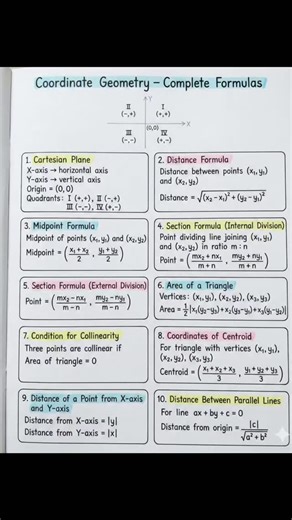 Coordinate Geometry – Complete Formulas
Y
II
(-,+)
I
(+,+)
(0,0)
X
III
(-,-)
IV
(+,-)
1. Cartesian Plane
X-axis → horizontal axis
Y-axis → vertical axis
Origin = (0, 0)
Quadrants: I (+,+), II (-,+)
III (-,-), IV (+,-)
2. Distance Formula
Distance between points (x₁, y₁)
and (x₂, y₂)
Distance = √(x₂ – x₁)² + (y₂ – y₁)²
3. Midpoint Formula
Midpoint of points (x₁, y₁) and (x₂, y₂)
Midpoint = (x₁ + x₂ / 2 , y₁ + y₂ / 2)
4. Section Formula (Internal Division)
Point dividing line joining (x₁, y₁)
and (x₂, y₂) in ratio m : n
Point = (mx₂ + nx₁ / m + n , my₂ + ny₁ / m + n)
5. Section Formula (External Division)
Point = (mx₂ – nx₁ / m – n , my₂ – ny₁ / m – n)
6. Area of a Triangle
Vertices: (x₁, y₁), (x₂, y₂), (x₃, y₃)
Area = ½ |x₁(y₂–y₃)+x₂(y₃–y₁)+x₃(y₁–y₂)|
7. Condition for Collinearity
Three points are collinear if
Area of triangle = 0
8. Coordinates of Centroid
For triangle with vertices (x₁, y₁),
(x₂, y₂), (x₃, y₃)
Centroid = (x₁ + x₂ + x₃ / 3 , y₁ + y₂ + y₃ / 3)
9. Distance of a Point from X-axis
and Y-axis
Distance from X-axis = |y|
Distance from Y-axis = |x|
10. Distance Between Parallel Lines
For line ax + by + c = 0
Distance from origin = |c| / √a² + b²